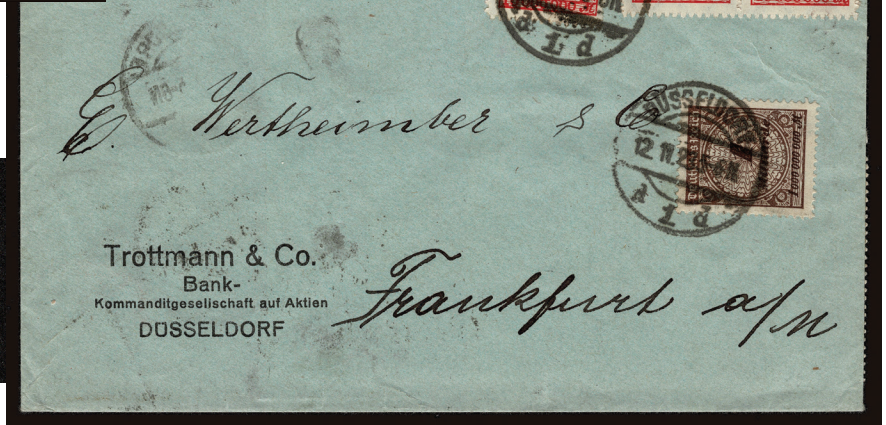 1 d
E. Wertheimber & Co
DÜSSELDORF
12.11.2
1
* 1 d
Trottmann & Co.
Bank-
Kommanditgesellschaft auf Aktien
DÜSSELDORF
Frankfurt a/M